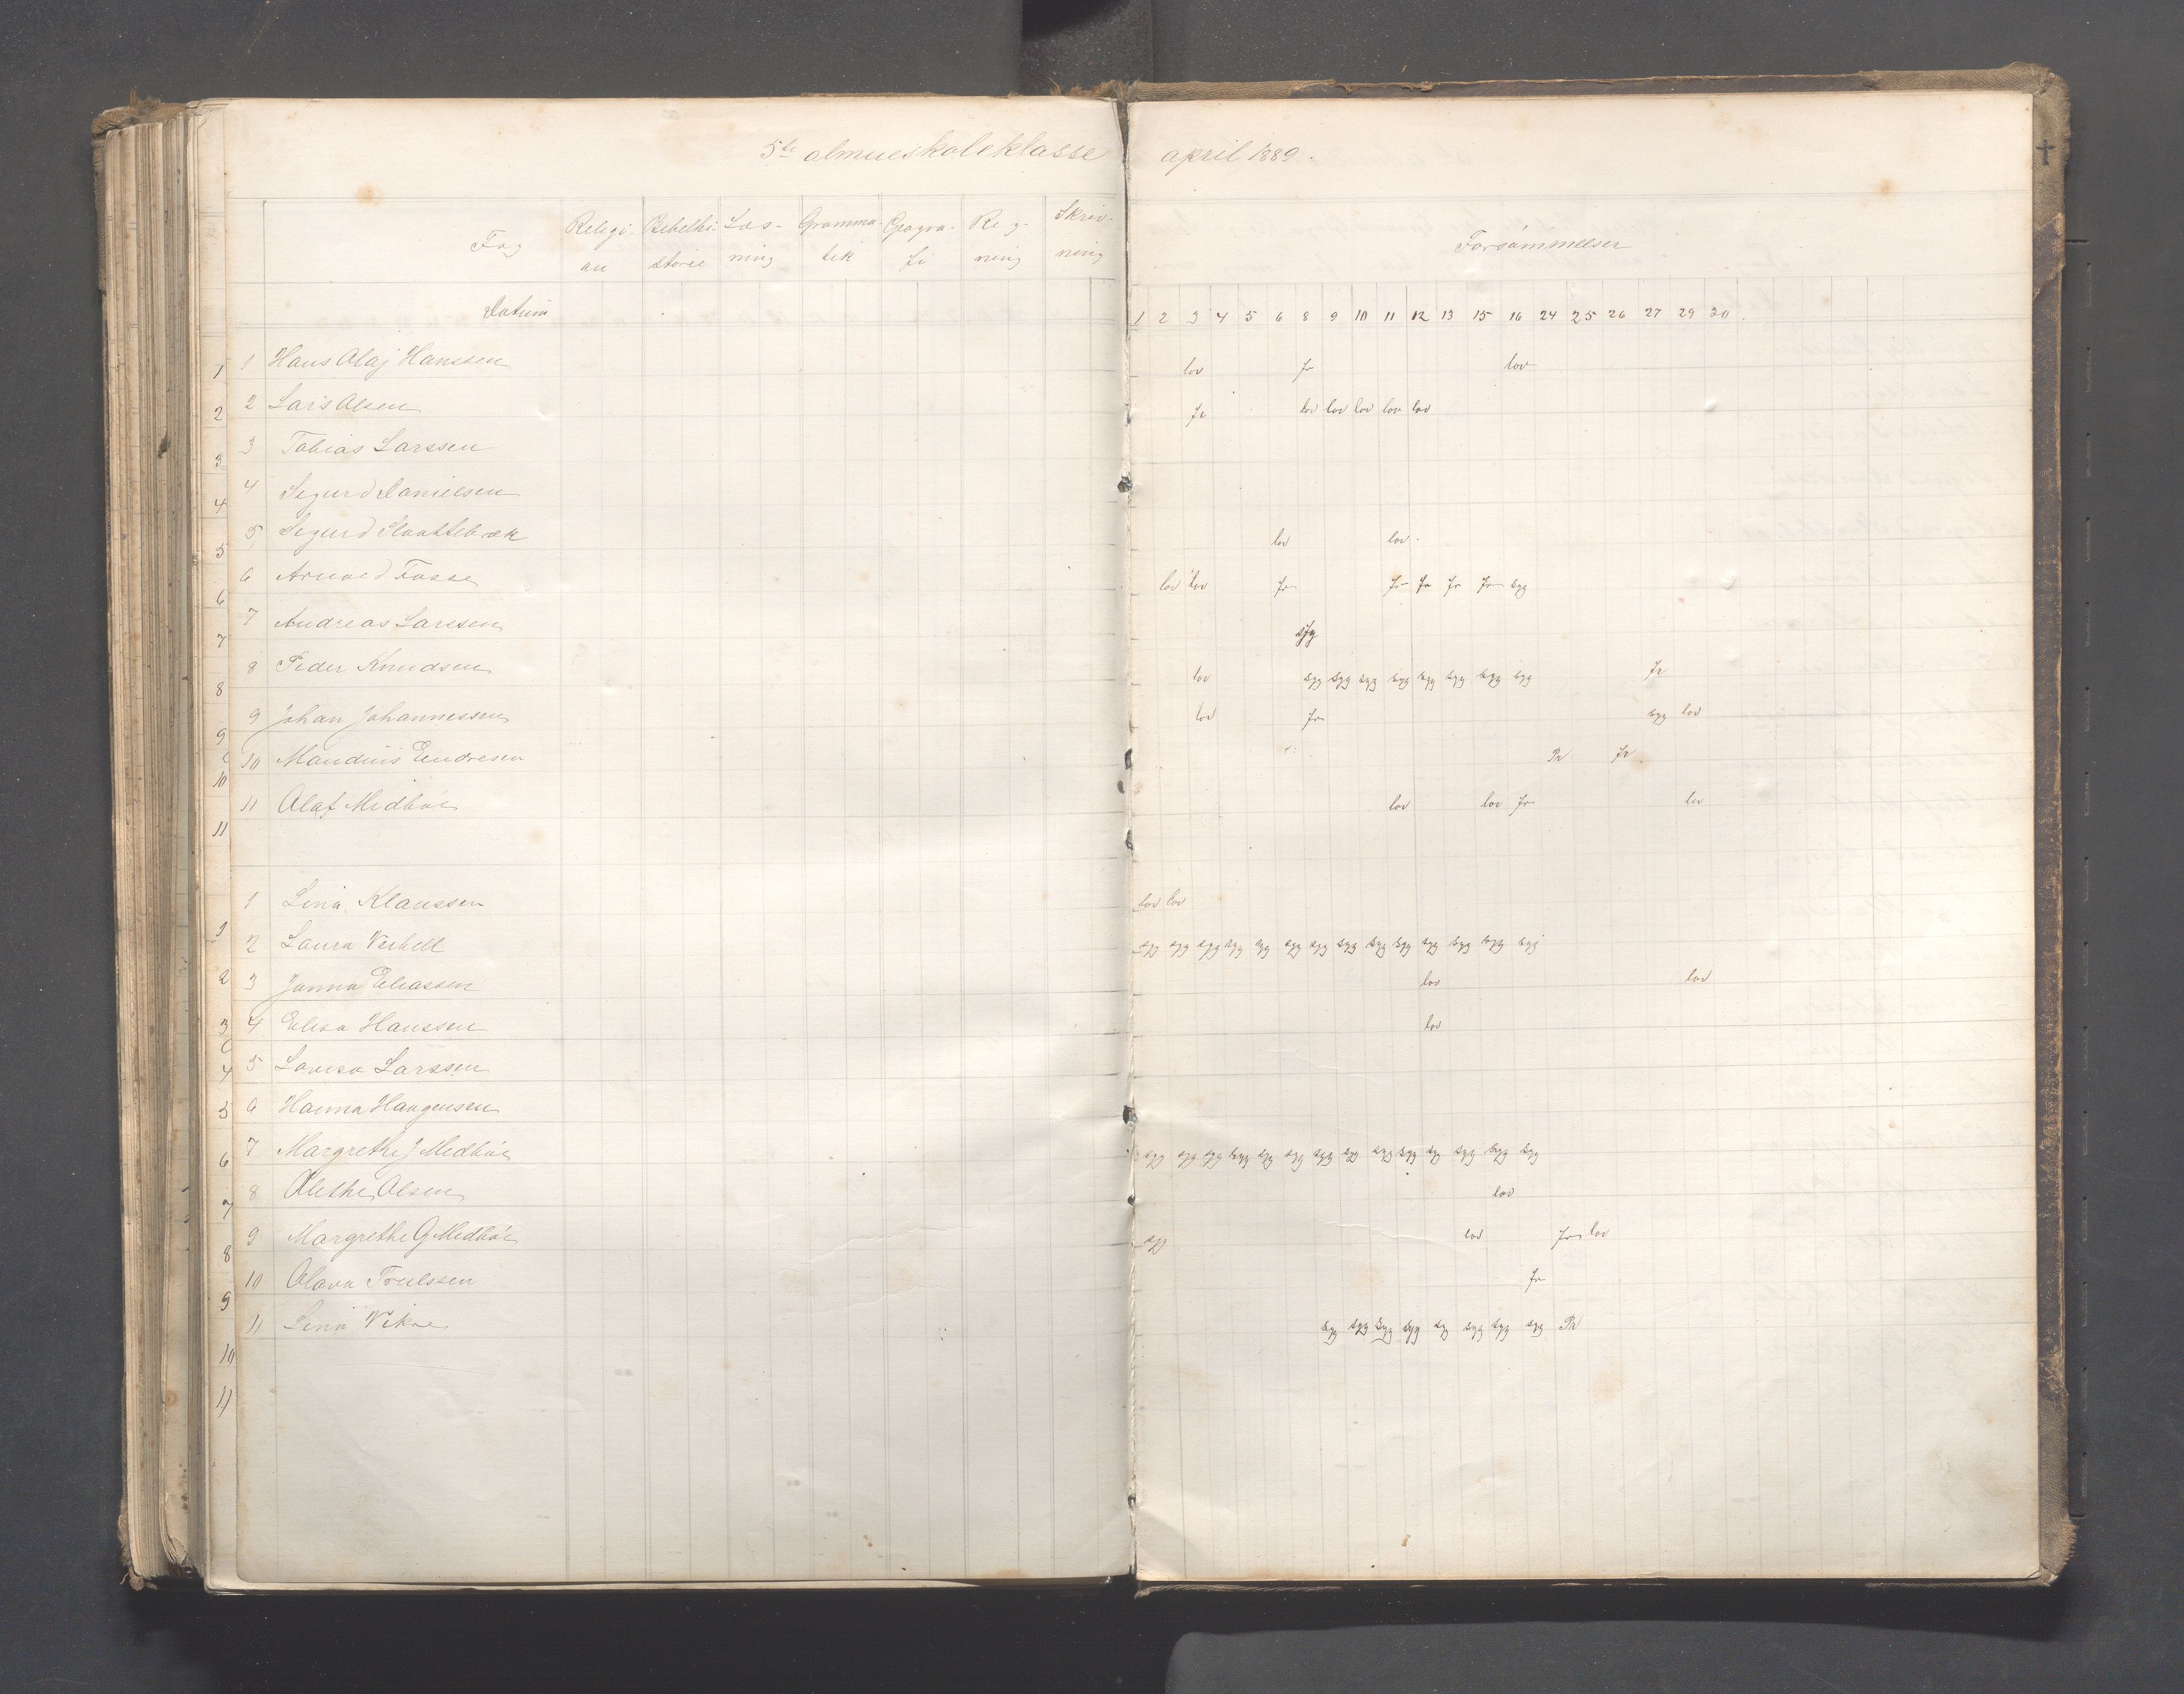 5te almueskoleklasse april 1889.
Fag Religi- Bibelhi- Læs- Gramma- Geogra- Reg- Skriv-
on storie ning tik fi ning ning
Forsømmelser
Datum 1 2 3 4 5 6 8 9 10 11 12 13 15 16 24 25 26 27 29 30.
1 1 Hans Olaj Hanssen lov fr lov
2 2 Lars Olsen fr lov lov lov lov lov
3 3 Tobias Larssen
4 4 Sigurd Danielsen
5 5 Sigurd lov lov.
6 6 Arnold Fosse lov lov fr fr fr fr fr syg
7 7 Andreas Larssen syg
8 8 Peder Knudsen lov syg syg syg syg syg syg syg syg fr
9 9 Johan Johannessen lov fr syg lov
10 10 Maudius Endresen fr fr
11 11 Olaf Medbøe lov lov fr lov
1 1 Lina Klaussen lov lov
2 2 Laura syg syg syg syg syg syg syg syg syg syg syg syg syg syg
3 3 Janna Eliassen lov lov
4 4 Elisa Hanssen lov
5 5 Lovisa Larssen
6 6 Hanna Haugensen
7 7 Margrethe J Medbøe syg syg syg syg syg syg syg syg syg syg syg syg syg syg
8 8 Olethe Olsen lov
9 9 Margrethe G Medbøe syg lov fr lov
10 10 Olava Trulssen fr
11 11 Lina Vikse syg syg syg syg syg syg syg syg fr